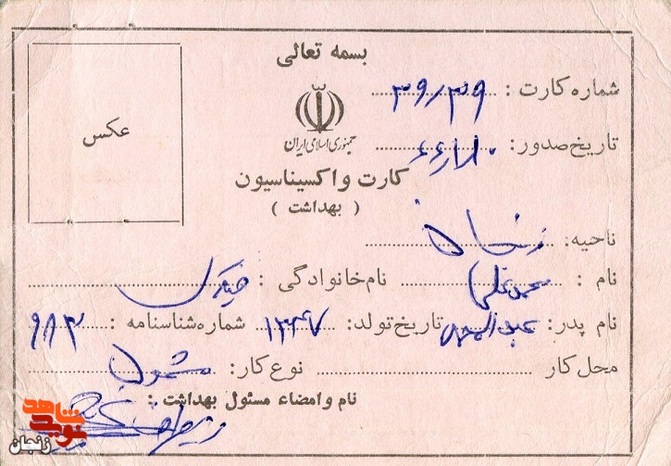 بسمه تعالی
شماره کارت : ۳۹/۳۹
جمهوری اسلامی ایران
تاریخ صدور:
عکس
کارت واکسیناسیون
( بهداشت )
ناحیه: زنجان
نام : محمدعلی نام خانوادگی :
نام پدر: تاریخ تولد: ۱۳۴۷ شماره شناسنامه : ۹۸۳
محل کار نوع کار: مشمول
نام وامضاء مسئول بهداشت :
نوید شاهد
زنجان